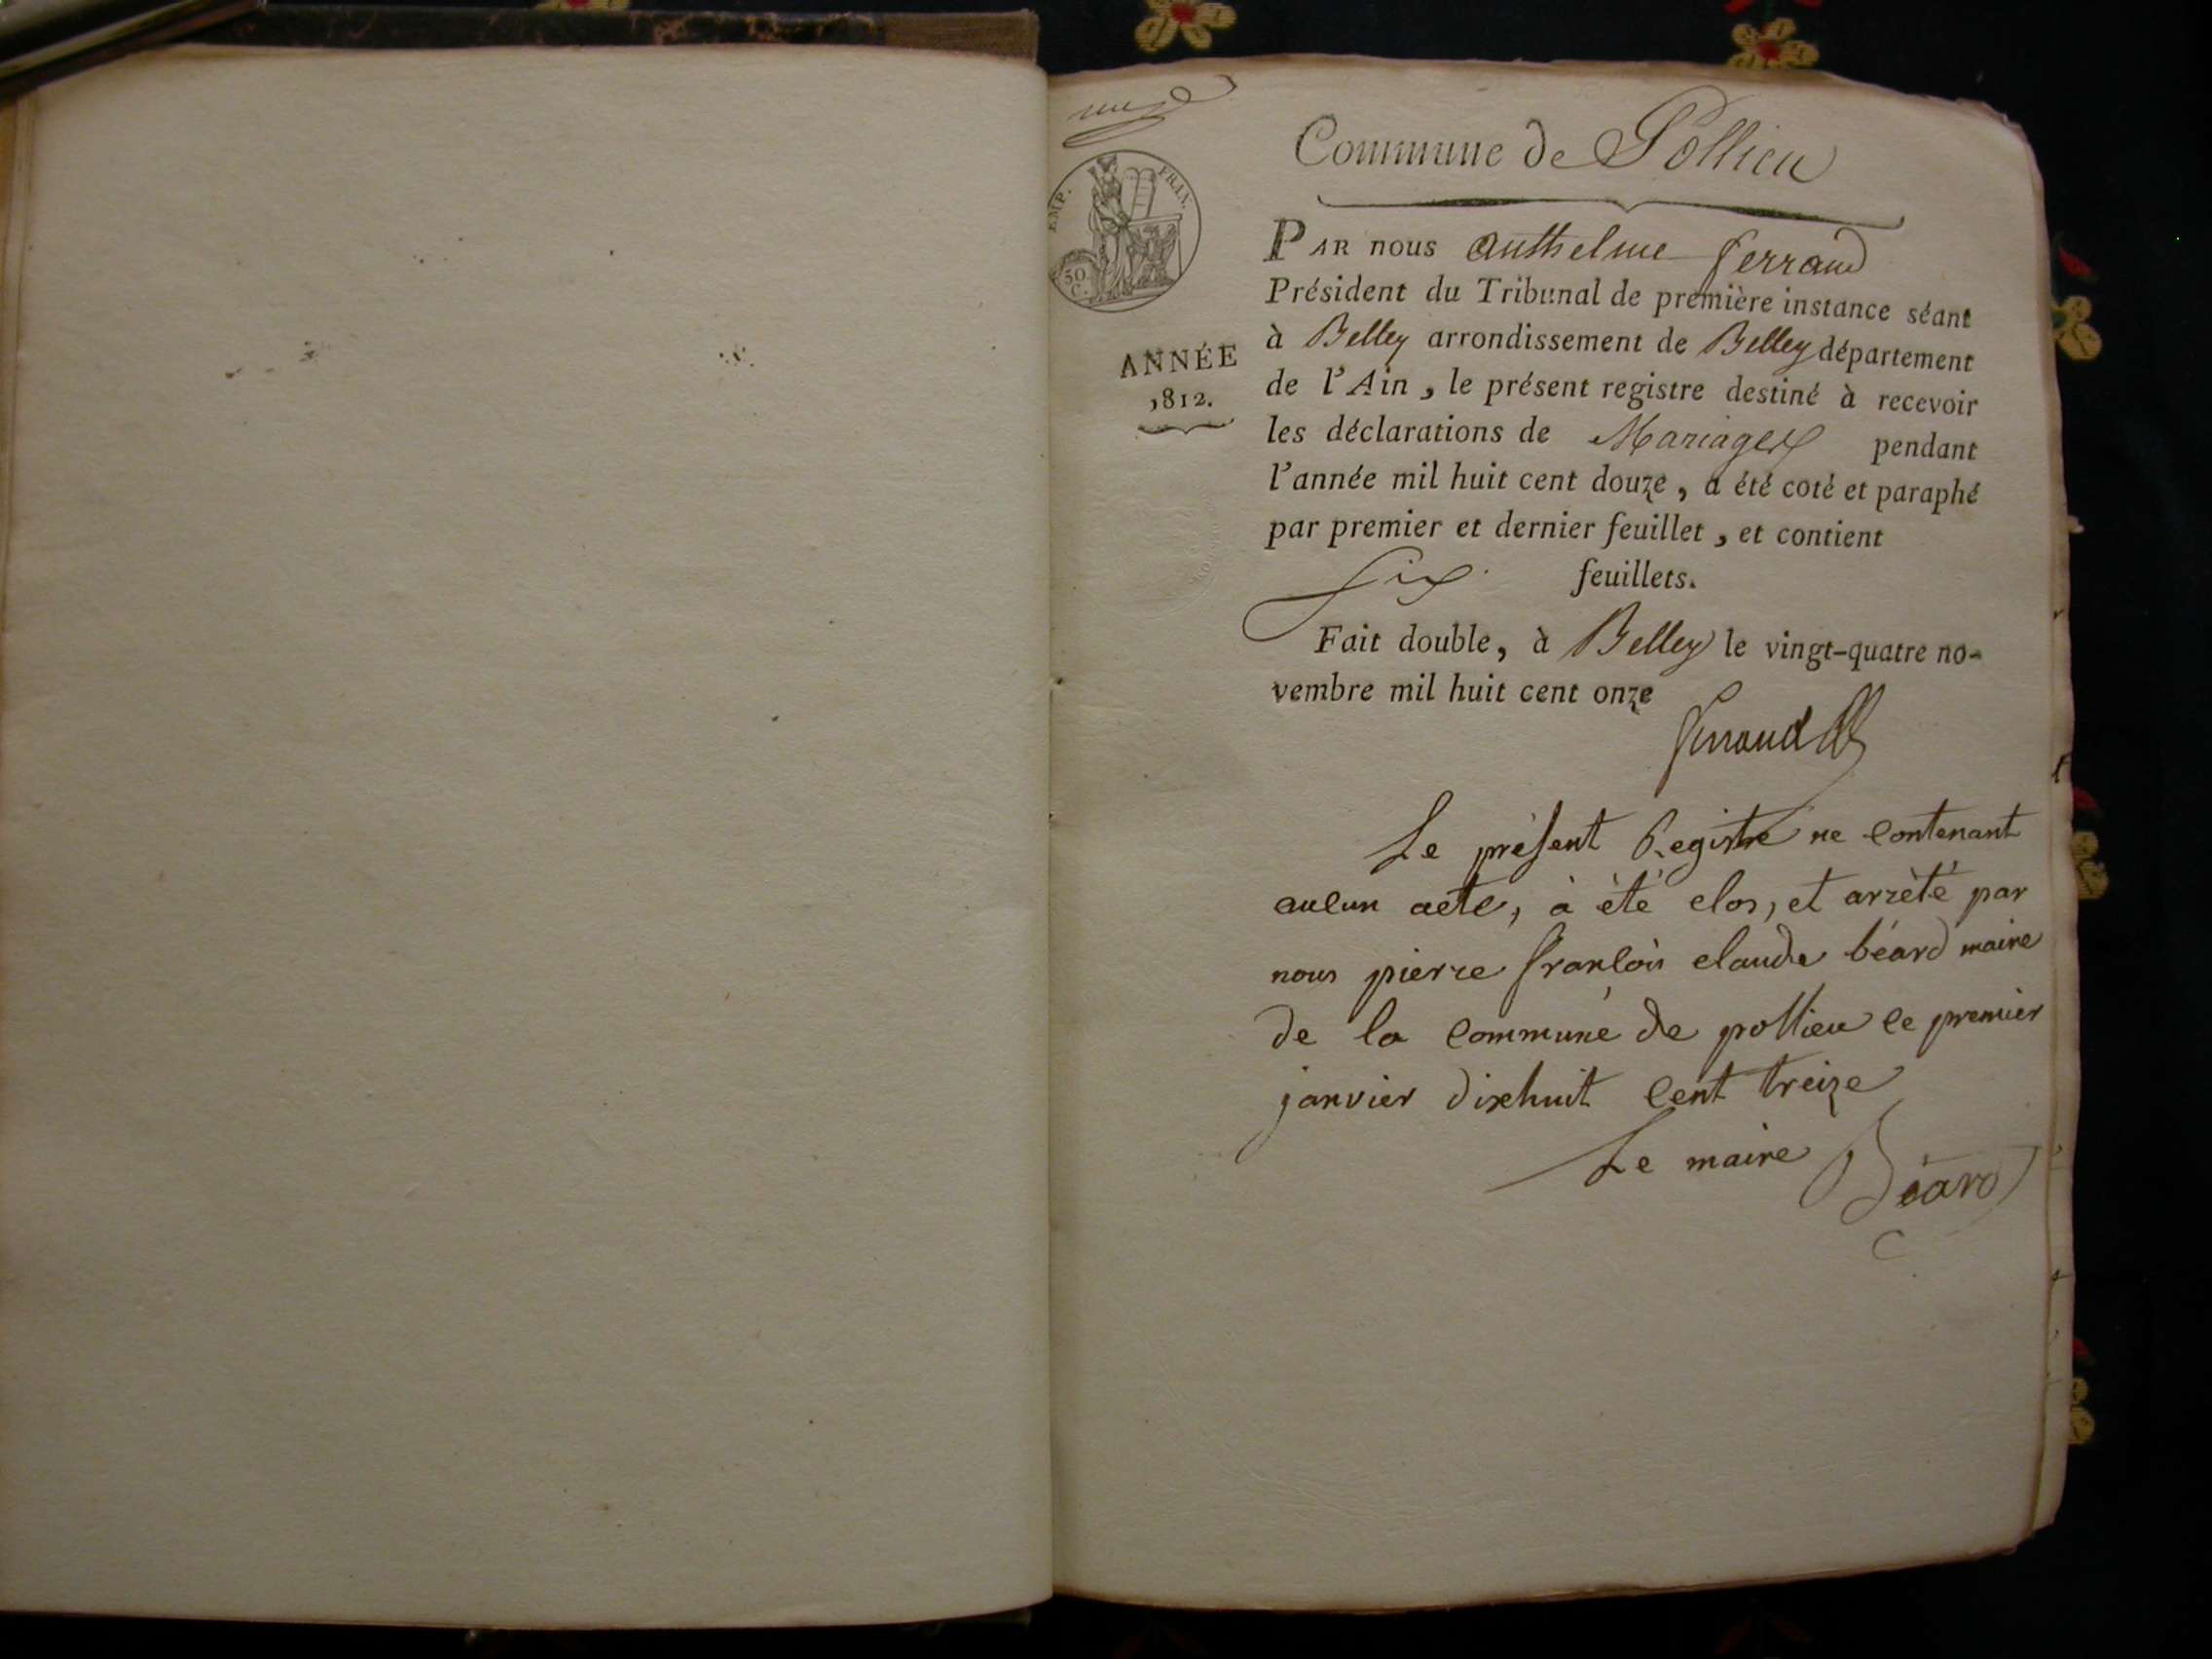 Commune de Pollieu
EMP. FRAN.
50
C.
PAR nous Anthelme ferrand
Président du Tribunal de première instance séant
à Belley arrondissement de Belley département
ANNÉE
1812.
de l'Ain, le présent registre destiné à recevoir
les déclarations de Mariages pendant
l'année mil huit cent douze, a été coté et paraphé
par premier et dernier feuillet, et contient
six feuillets.
Fait double, à Belley le vingt-quatre no-
vembre mil huit cent onze
ferrand
Le présent Registre ne contenant
aucun acte, à été clos, et arrèté par
nous pierre françois claude béard maire
de la commune de pollieu ce premier
janvier dixhuit cent treize
Le maire Béard